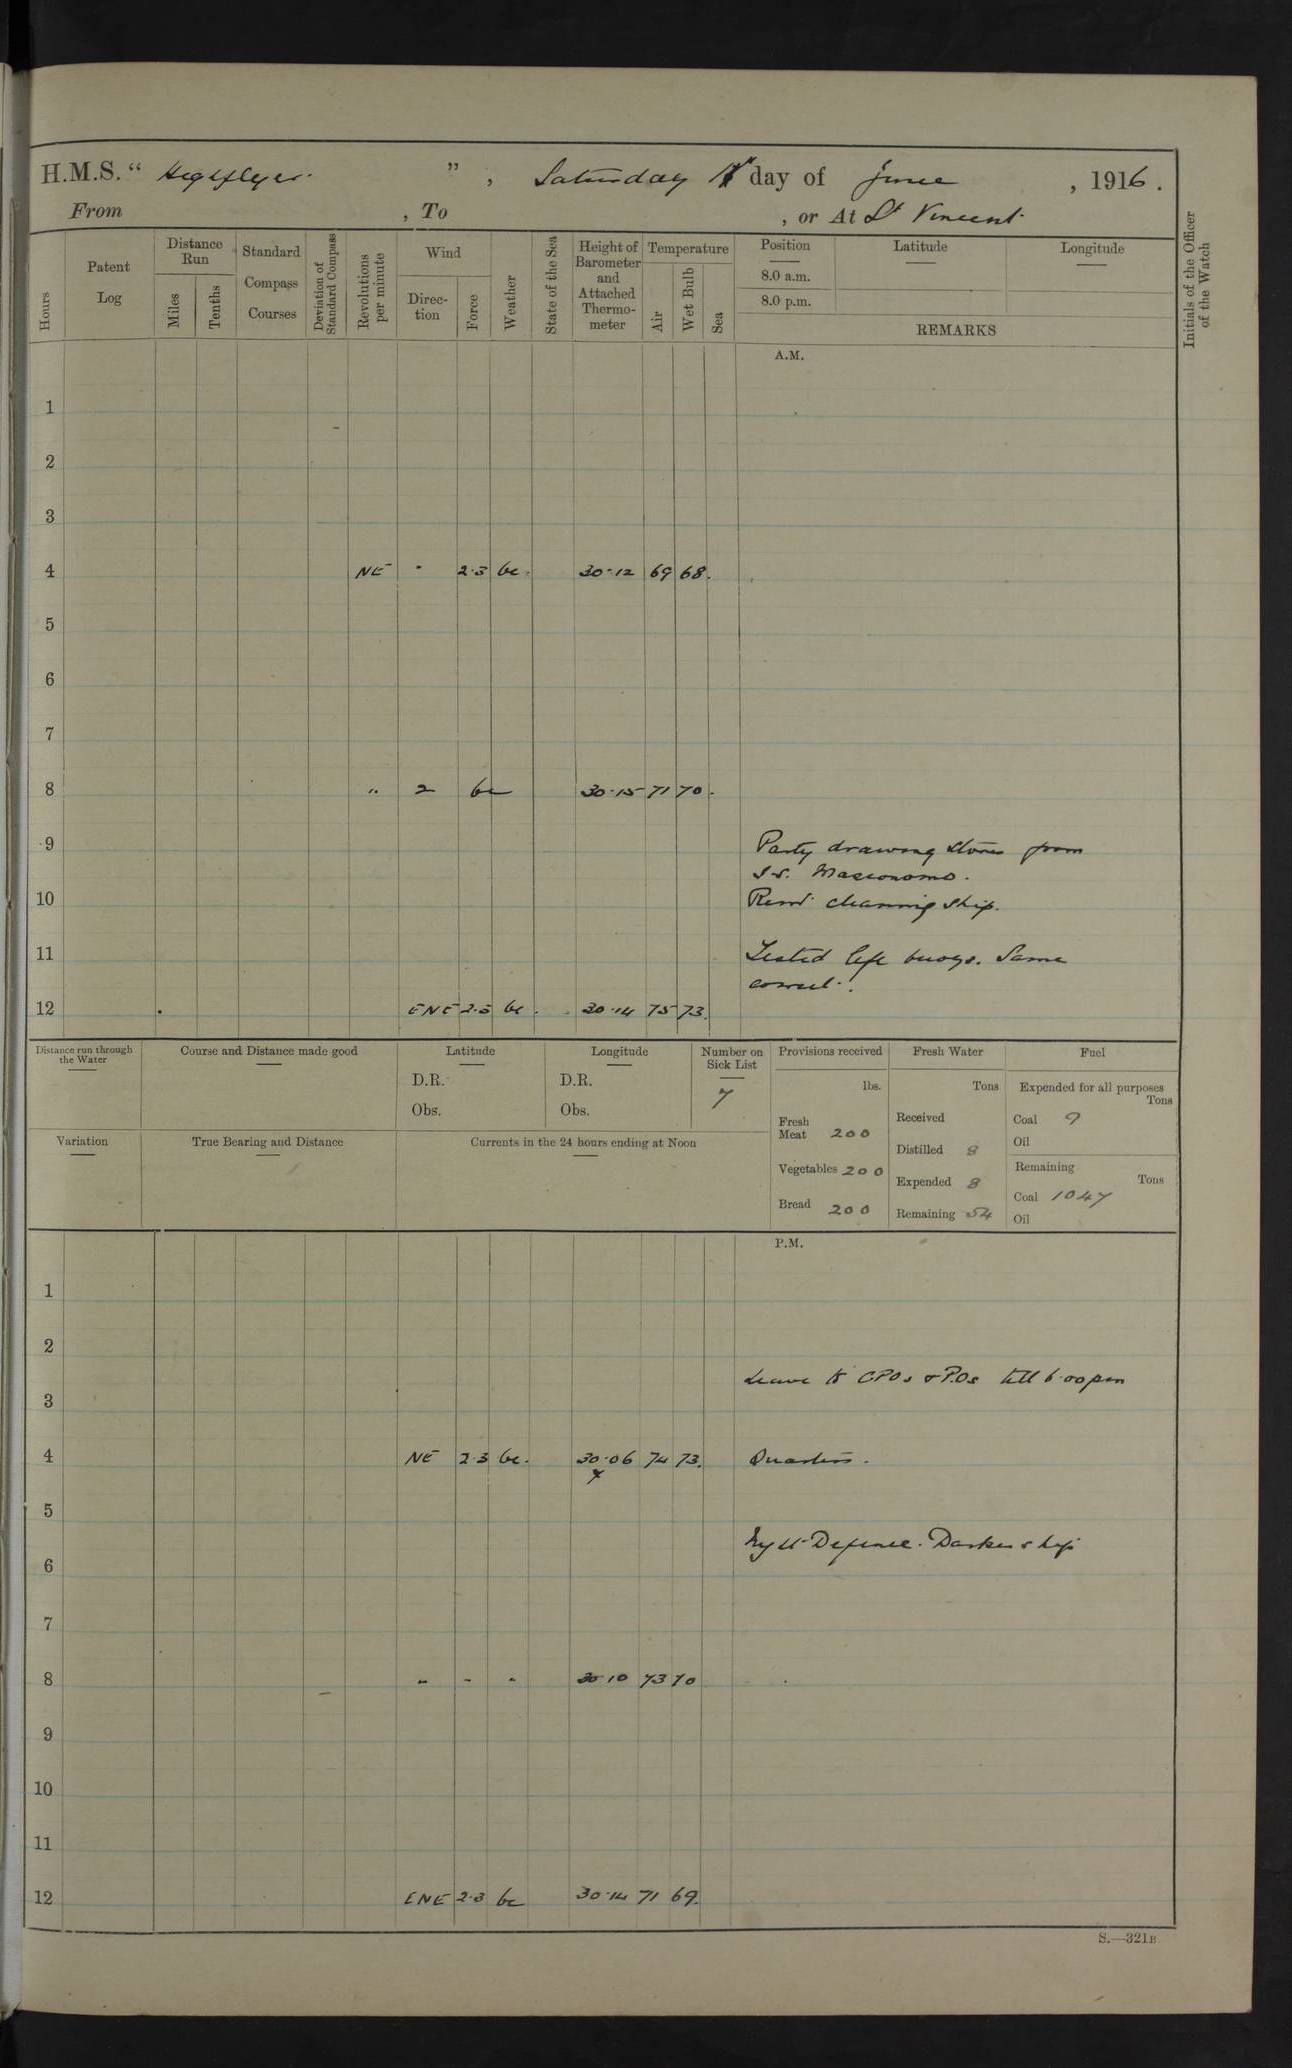 H.M.S. “ Highflyer ” , Saturday day of June , 1916 .
From , To , or At St Vincent
Hours
Patent Log
Distance Run
Miles
Tenths
Standard Compass Courses
Deviation of Standard Compass
Revolutions per minute
Wind
Direc-tion
Force
Weather
State of the Sea
Height of Barometer and Attached Thermo-meter
Temperature
Air
Wet Bulb
Sea
Position
8.0 a.m.
8.0 p.m.
Latitude
Longitude
REMARKS
Initials of the Officer of the Watch
A.M.
1
2
3
4 NE " 2.3 bc. 30.12 69 68.
5
6
7
8 " 2 bc 30.15 71 70.
9 Party drawing stores from
S.S. Masconomo.
10 Remr cleaning ship.
11 Tested life buoys. Same
correct.
12 ENE 2.3 bc. 30.14 75 73.
Distance run through the Water
Course and Distance made good
Latitude
D.R.
Obs.
Longitude
D.R.
Obs.
Number on Sick List
7
Provisions received
lbs.
Fresh Meat 200
Vegetables 200
Bread 200
Fresh Water
Tons
Received
Distilled 8
Expended 8
Remaining 54
Fuel
Expended for all purposes
Tons
Coal 9
Oil
Remaining
Tons
Coal 1047
Oil
Variation
True Bearing and Distance
Currents in the 24 hours ending at Noon
P.M.
1
2
Leave to CPOs & POs till 6.00 pm
3
4 NE 2.3 bc. 30.06 74 73. Quarters.
5
Night Defence. Darken ship
6
7
8 " " " 30 10 73 70
9
10
11
12 ENE 2.3 bc 30.14 71 69.
S.—321B